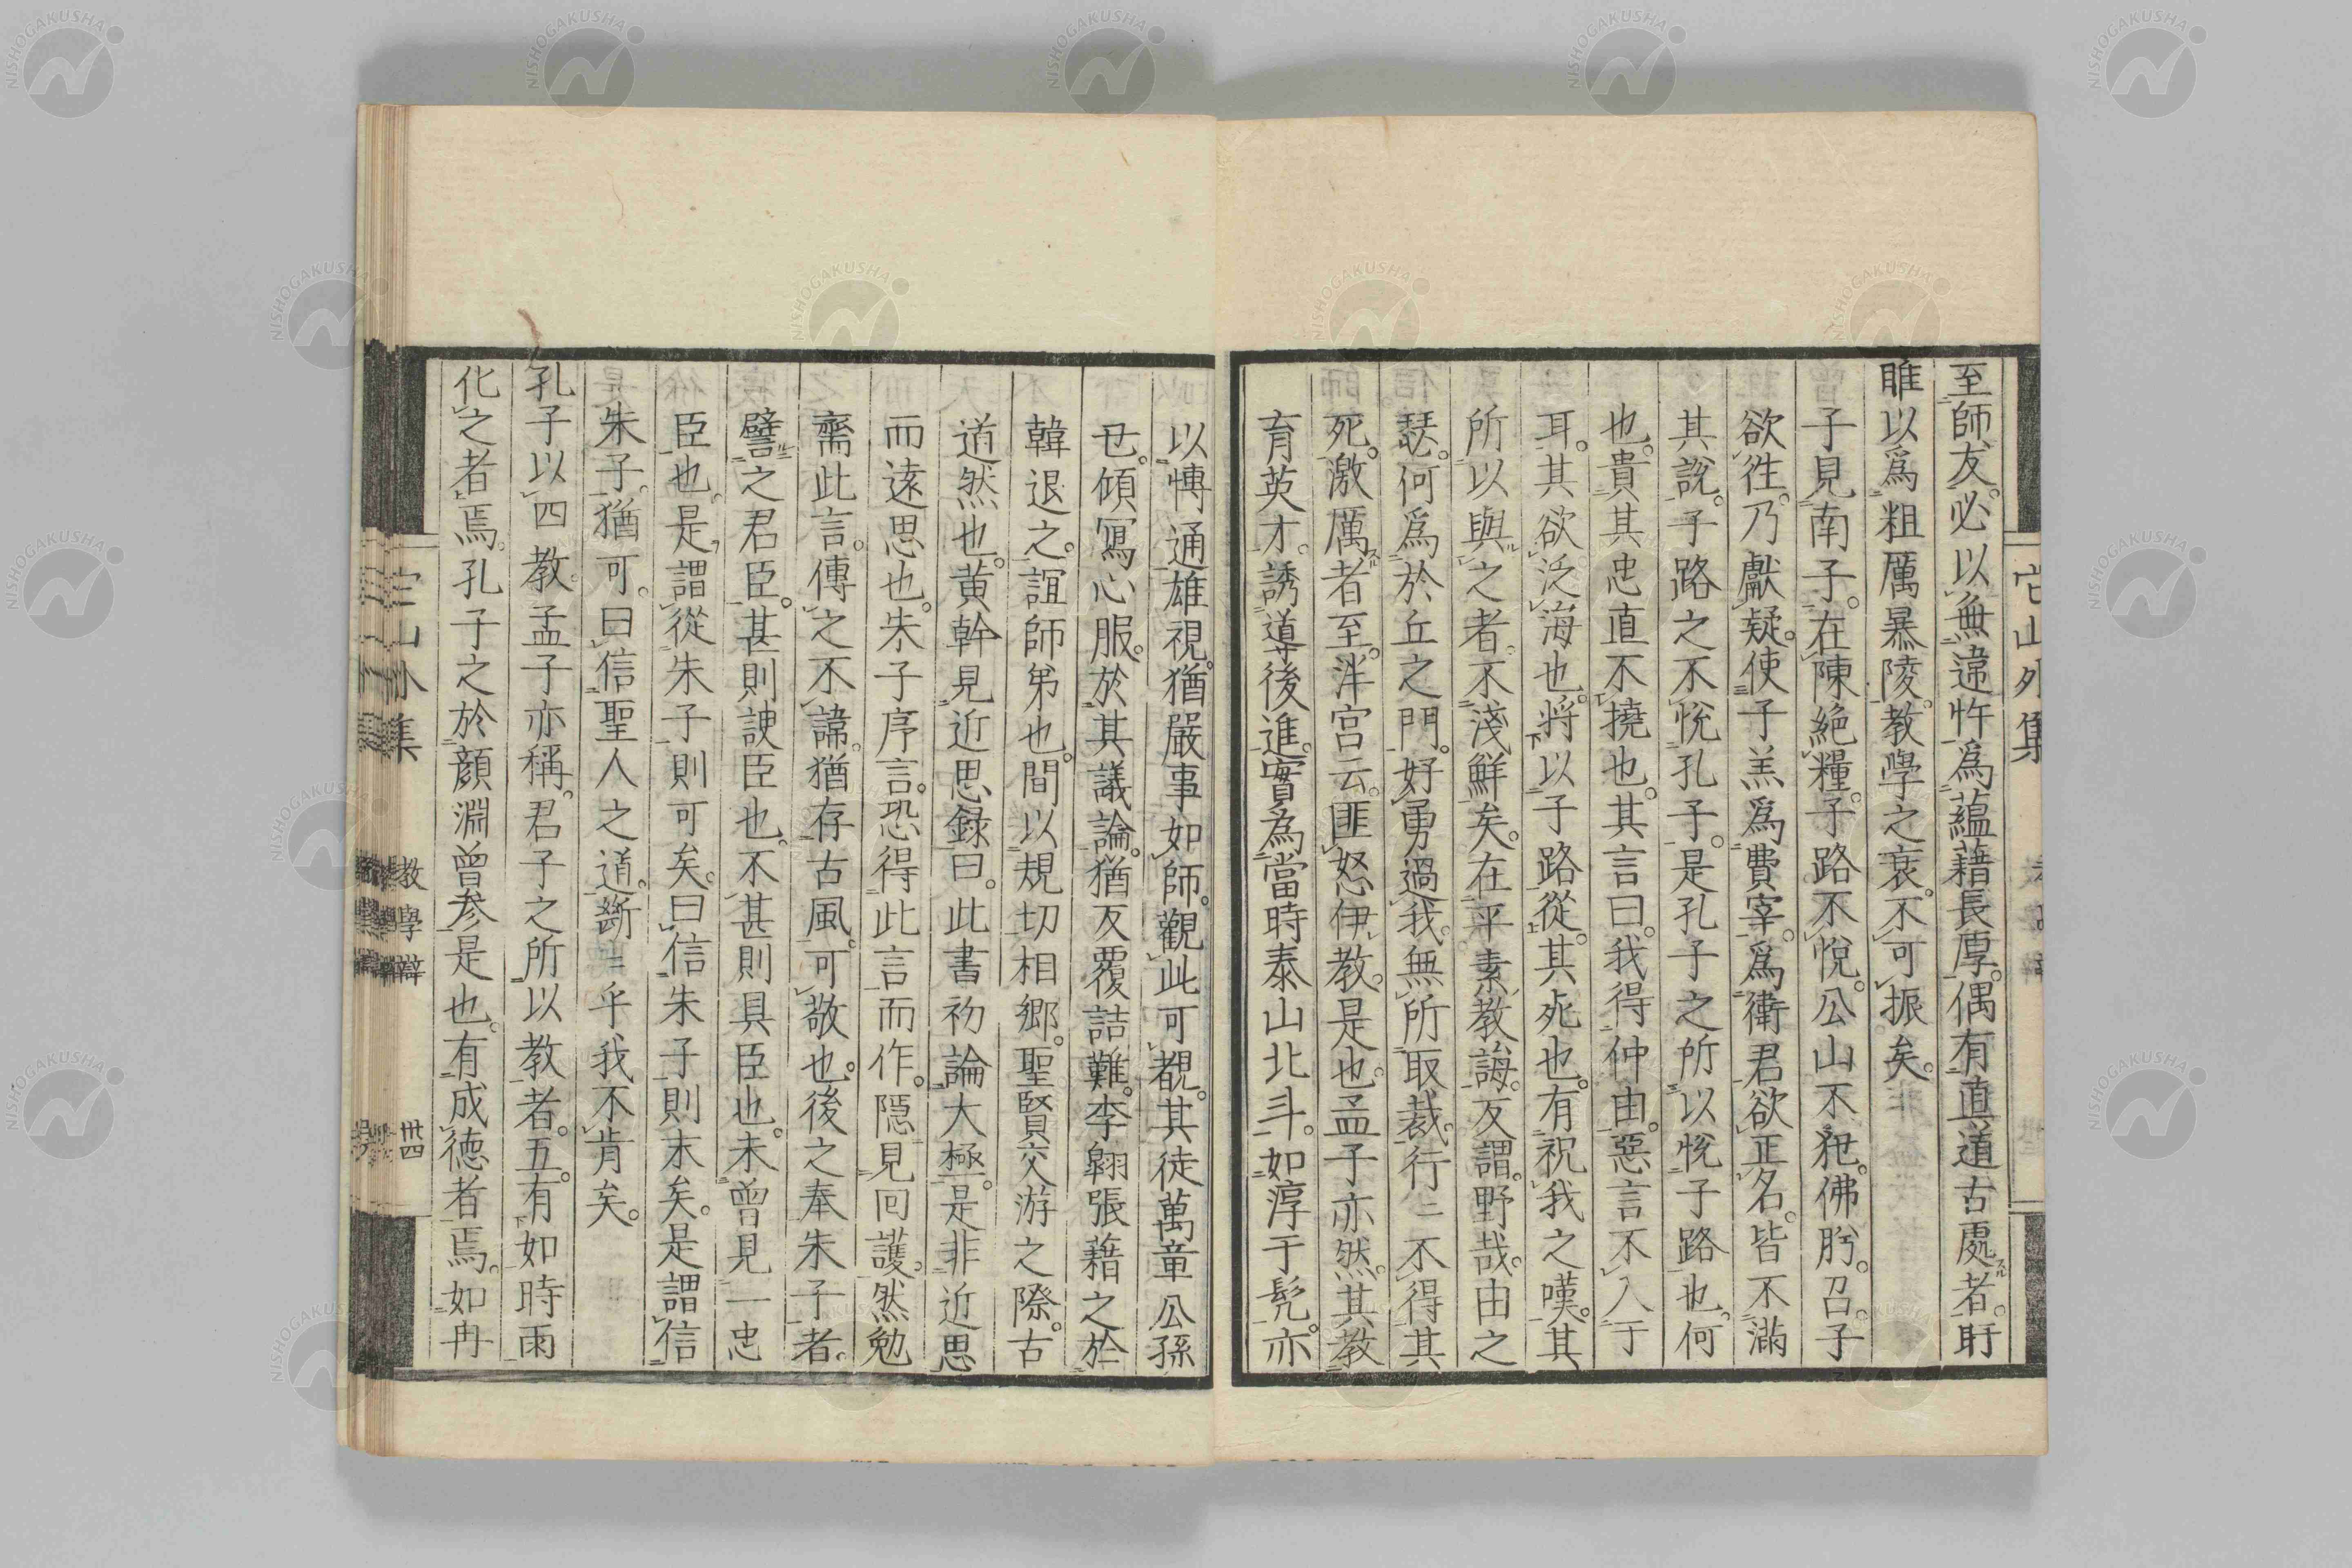 至師友。必以無違忤爲蘊藉長厚。偶有真道古處者。盱
睢以爲粗厲暴陵。教學之衰。不可振矣。
子見南子。在陳絶糧。子路不悅。公山不狃。佛肸。召。子
欲徃。乃獻疑。使子羔爲費宰。爲衛君欲正名。皆不滿
其說。子路之不悅孔子。是孔子之所以悅子路也。何
也。貴其忠直不撓也。其言曰。我得仲由。惡言不入于
耳。其欲泛海也。將以子路從。其死也。有祝我之嘆。其
所以與之者。不淺鮮矣。在平素教誨。反謂。野哉。由之
瑟。何爲於丘之門。好勇過我。無所取裁。行〻不得其
死。激厲者至。泮宮云。匪怒伊教。是也。孟子亦然。其教
育英才。誘導後進。實為當時泰山北斗。如淳于髡。亦
以愽通雄視。猶嚴事如師。觀此可覩。其徒萬章公孫
丑。傾寫心服。於其議論。猶反覆詰難。李翺張藉之於
韓退之。誼師弟也。間以規切相郷。聖賢父游之際。古
道然也。黃幹見近思錄曰。此書初論大極。是非近思
而遠思也。朱子序言。恐得此言而作。隱見回護。然勉
齋此言。傳之不諱。猶存古風。可敬也。後之奉朱子者。
譬之君臣。甚則諛臣也。不甚則具臣也。未曾見一忠
臣也。是謂從朱子則可矣。曰信朱子則末矣。是謂信
朱子。猶可。曰信聖人之道。斷〻乎我不肯矣。
孔子以四教。孟子亦稱。君子之所以教者。五。有如時雨
化之者焉。孔子之於顏淵曾参是也。有成德者焉。如冉
它山外集
教學辯
卅四